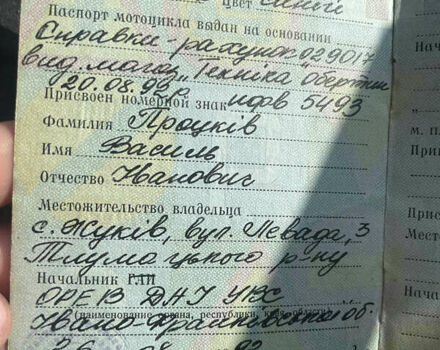 цвет синій
Паспорт мотоцикла выдан на основании
Справки-рахунок 029017
вид. магаз. "Техніка" Обертин
20.08.93 р.
Присвоен номерной знак ИФВ 5493
Фамилия Процків
Имя Василь
Отчество Іванович
Местожительство владельца
с. Жуків, вул. Левада, 3
Тлумацького р-ну
Начальник ГАИ
ОРЕВ ДАІ УВС
(наименование органа, республики, края, области)
Івано-Франківської об.